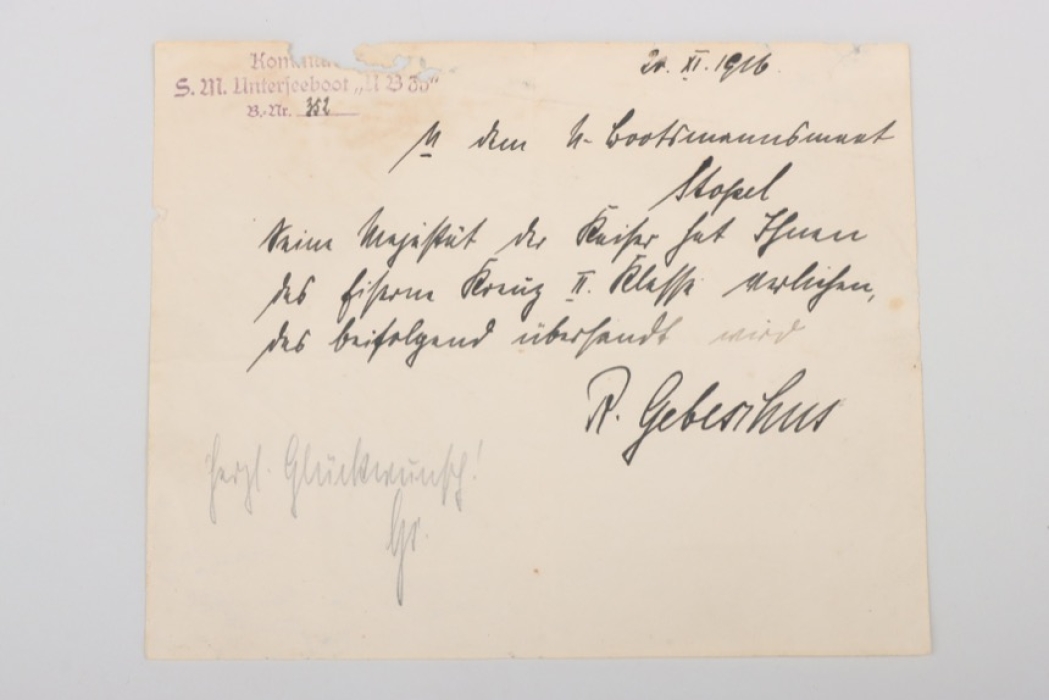 S. M. Unterseeboot „U B 35“
B.-Nr. 352
XI. 1916.
U dem U-Bootsmannsmaat
Stopel
Seine Majestät der Kaiser hat Ihnen
das Eiserne Kreuz II. Klasse verliehen,
das beifolgend übersandt wird
R. Gebeschus
Herzl. Glückwunsch!
Ge.